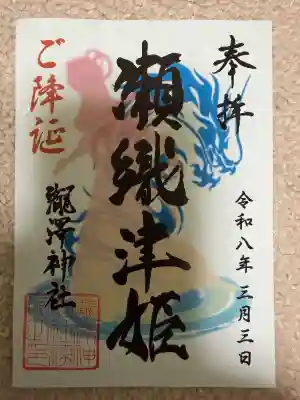 奉拝
令和八年 三月三日
瀬織津姫
ご降誕
瀧澤神社